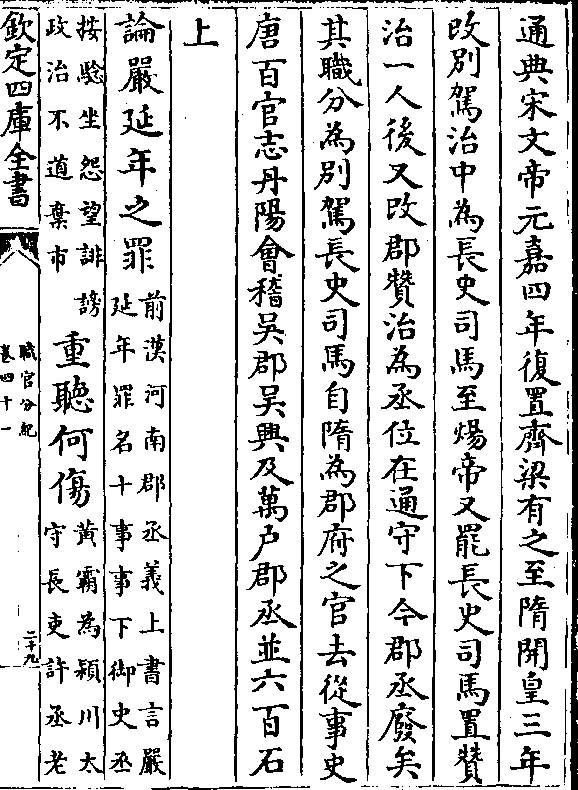 通典宋文帝元嘉四年復置齊梁有之至隋開皇三年
改別駕治中為長史司馬至煬帝又罷長史司馬置贊
治一人後又改郡贊治為丞位在通守下今郡丞廢矣
其職分為別駕長史司馬自隋為郡府之官去從事史
唐百官志丹陽會稽吳郡吳興及萬户郡丞並六百石
上
論嚴延年之罪
前漢河南郡丞義上書言嚴
延年罪名十事事下御史丞
按騐坐怨望誹謗
政治不道棄市
重聽何傷
黃霸為頴川太
守長吏許丞老
欽定四庫全書
職官分紀
卷四十一
二十九